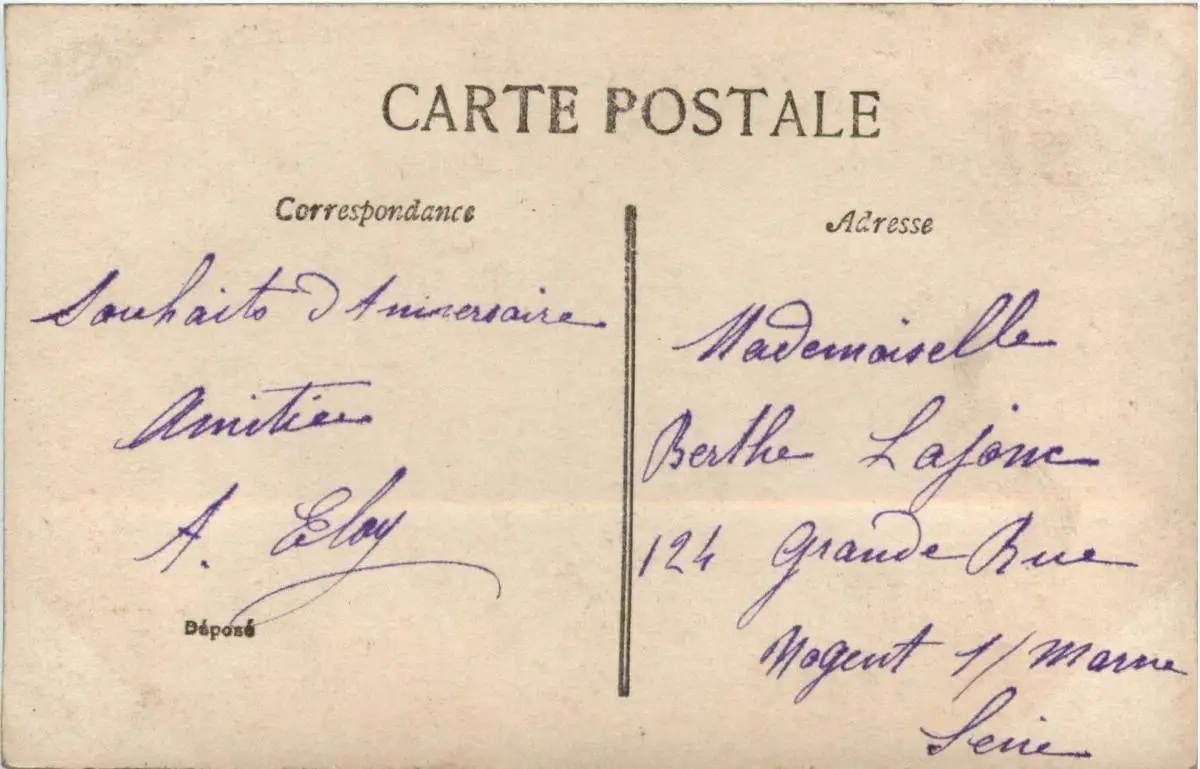 CARTE POSTALE
Correspondance
Souhaits d'Aniversaire
Amitiées
A. Eloy
Déposé
Adresse
Mademoiselle
Berthe Lajonc
124 Grande Rue
Nogent s/ Marne
Seine